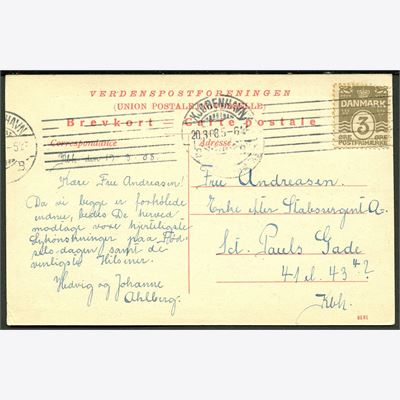 VERDENSPOSTFORENINGEN
(UNION POSTALE UNIVERSELLE)
Brevkort — Carte postale
Correspondance
Adresse
KJØBENHAVN
20.3.08.5-6
DANMARK
3
POSTFRIMÆRKE
Kbh. den 19-3-08.
Kære Frue Andreasen!
Da vi begge er forhólede
indnu, bedes De herved
modtage vore hjerteligste
Lykønskninger paa Fød-
selsdagen samt de
venligste Hilsner.
Hedvig og Johanne
Ahlberg.
Frue Andreasen.
Enke efter Stabssergent A.
Sct. Pauls Gade
41 el. 43 4?
Kbh.